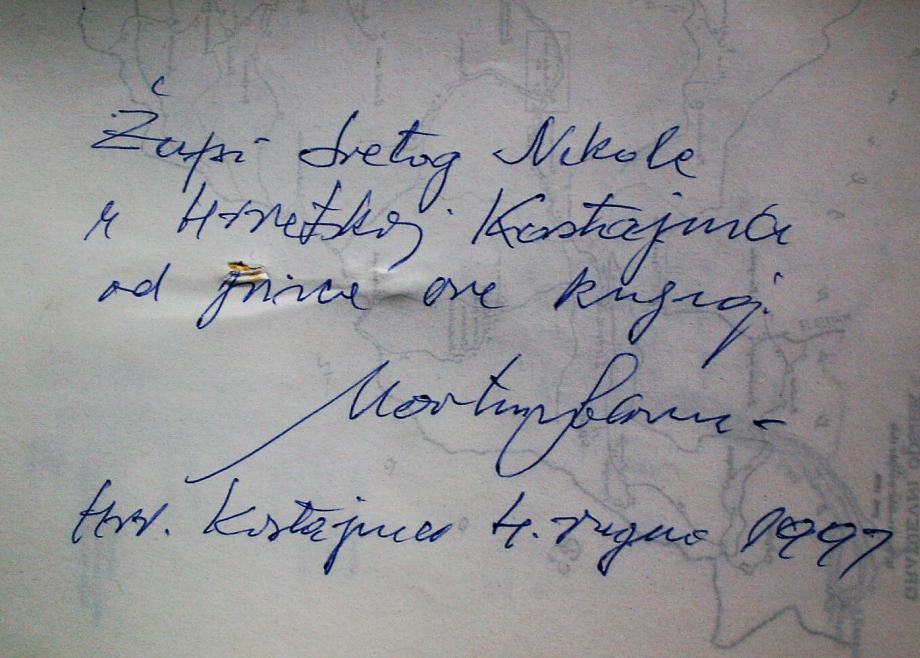 Župi Svetog Nikole
u Hrvatskoj Kostajnici
od pisca ove knjige.
Hrv. Kostajnica 4. rujna 1997